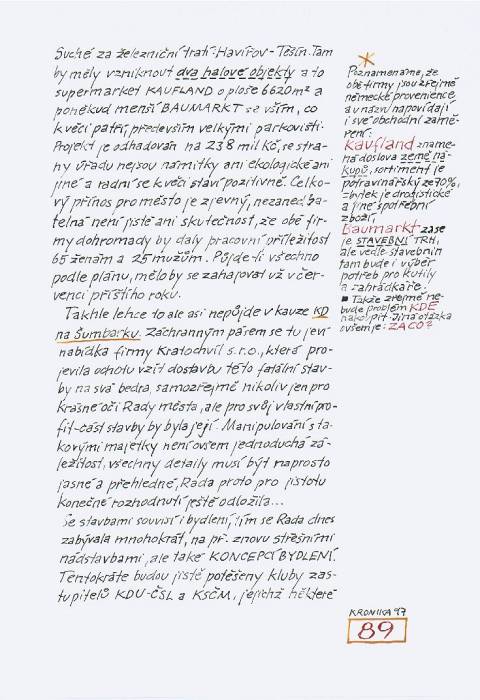 Suché za železniční tratí: Havířov-Těšín. Tam
by měly vzniknout dva halové objekty a to
supermarket KAUFLAND o ploše 6620 m² a
poněkud menší BAUMARKT se vším, co
k věci patří, především velkými parkovišti.
Projekt je odhadován na 238 mil Kč, se stra-
ny úřadu nejsou námitky ani ekologické ani
jiné a radní se k věci staví pozitivně. Celko-
vý přínos pro město je zjevný, nezanedba-
telná není jistě ani skutečnost, že obě fir-
my dohromady by daly pracovní příležitost
65 ženám a 25 mužům. Půjde-li všechno
podle plánu, mělo by se zahajovat už v čer-
venci příštího roku.
Takhle lehce to ale asi nepůjde v kauze KD
na Šumbarku. Záchranným pásem se tu jeví
nabídka firmy Kratochvíl s.r.o., která pro-
jevila ochotu vzít dostavbu této fatální stav-
by na svá bedra, samozřejmě nikoliv jen pro
krásné oči Rady města, ale pro svůj vlastní pro-
fit-část stavby by byla její. Manipulování s ta-
kovými majetky není ovšem jednoduchá zá-
ležitost, všechny detaily musí být naprosto
jasné a přehledné, Rada proto pro jistotu
konečné rozhodnutí ještě odložila...
Se stavbami souvisí i bydlení, tím se Rada dnes
zabývala mnohokrát, na př. znovu střešními
nadstavbami, ale také KONCEPCÍ BYDLENÍ.
Tentokráte budou jistě potěšeny kluby zas-
tupitelů KDU-ČSL a KSČM, jejichž některé
Poznamenáme, že
obě firmy jsou zřejmě
německé provenience
a v názvu napovídají
i své obchodní zamě-
ření:
Kaufland zname-
ná doslova země ná-
kupů, sortiment je
potravinářský ze 70%,
zbytek je drogistické
a jiné spotřební
zboží,
Baumarkt zase
je STAVEBNÍ TRH,
ale vedle stavebnin
tam bude i výběr
potřeb pro kutily
a zahrádkáře.
■ Takže zřejmě ne-
bude problém KDE
nakoupit. Jiná otázka
ovšem je: ZA CO?
KRONIKA 97
89